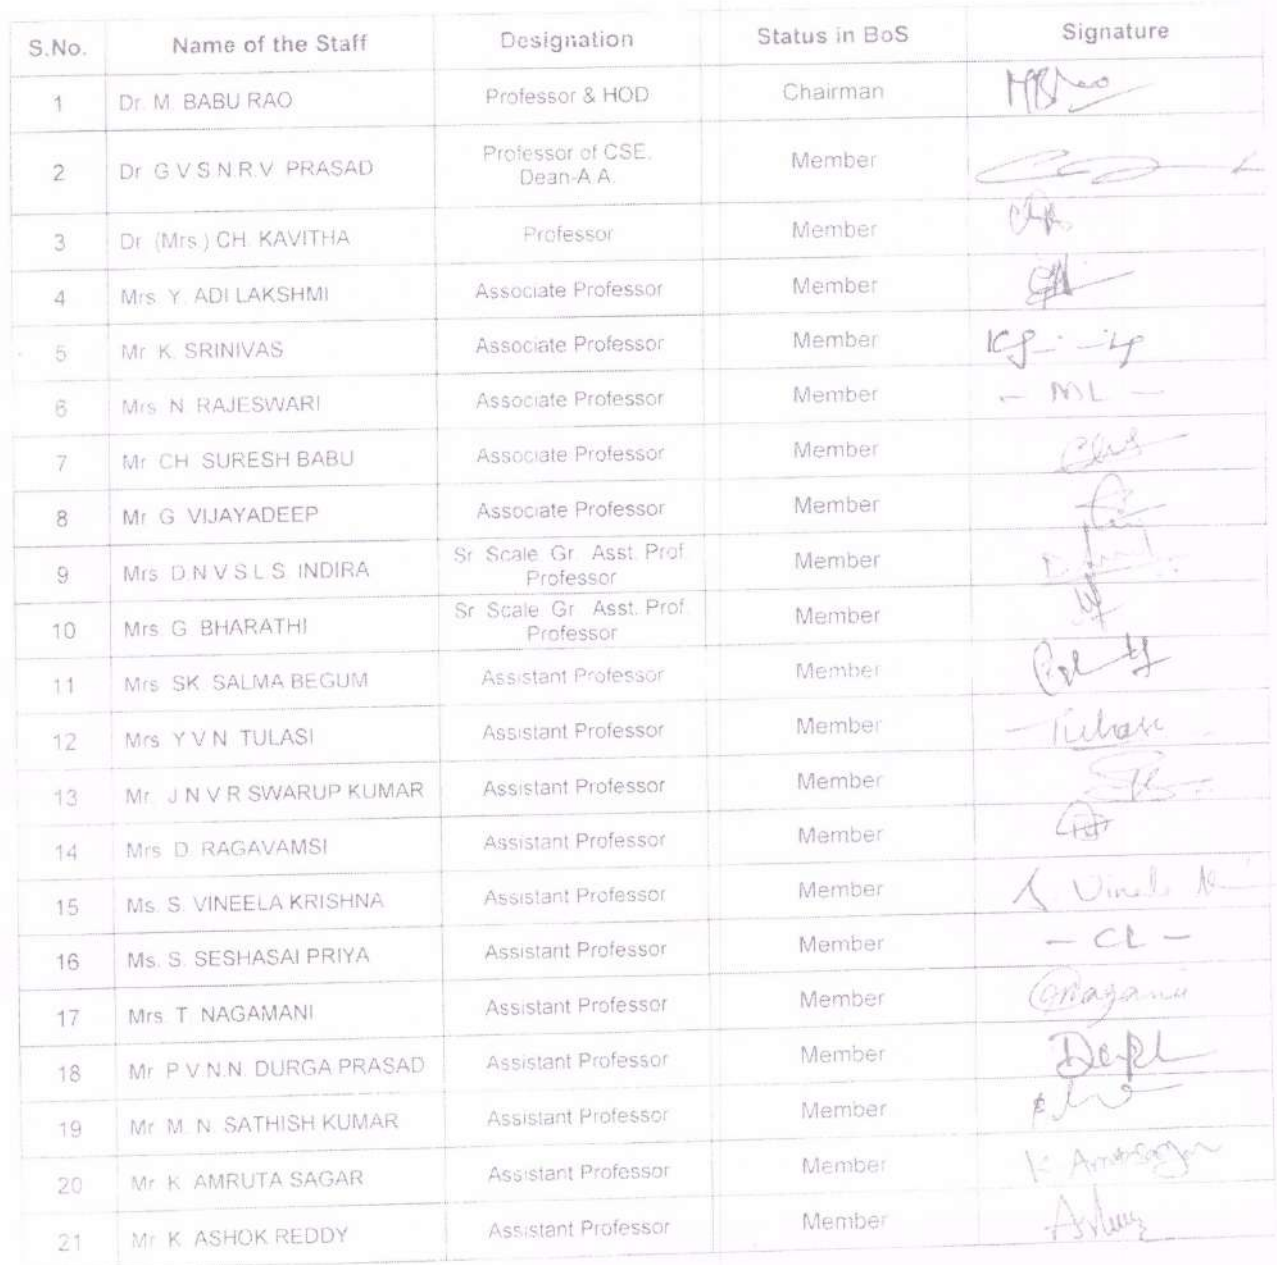 S.No. Name of the Staff Designation Status in BoS Signature
1 Dr. M. BABU RAO Professor & HOD Chairman
2 Dr G V S N.R.V. PRASAD Professor of CSE, Dean-A.A. Member
3 Dr. (Mrs.) CH. KAVITHA Professor Member
4 Mrs. Y. ADI LAKSHMI Associate Professor Member
5 Mr K. SRINIVAS Associate Professor Member
6 Mrs N. RAJESWARI Associate Professor Member - ML -
7 Mr CH SURESH BABU Associate Professor Member
8 Mr G VIJAYADEEP Associate Professor Member
9 Mrs D.N V S L.S INDIRA Sr Scale Gr. Asst. Prof. Professor Member
10 Mrs. G. BHARATHI Sr Scale Gr Asst. Prof. Professor Member
11 Mrs SK. SALMA BEGUM Assistant Professor Member
12 Mrs Y V N TULASI Assistant Professor Member Tulasi
13 Mr. J N V R SWARUP KUMAR Assistant Professor Member
14 Mrs D. RAGAVAMSI Assistant Professor Member
15 Ms. S. VINEELA KRISHNA Assistant Professor Member
16 Ms. S. SESHASAI PRIYA Assistant Professor Member - CL -
17 Mrs T. NAGAMANI Assistant Professor Member
18 Mr P V N.N. DURGA PRASAD Assistant Professor Member
19 Mr M. N. SATHISH KUMAR Assistant Professor Member
20 Mr. K AMRUTA SAGAR Assistant Professor Member
21 Mr K ASHOK REDDY Assistant Professor Member